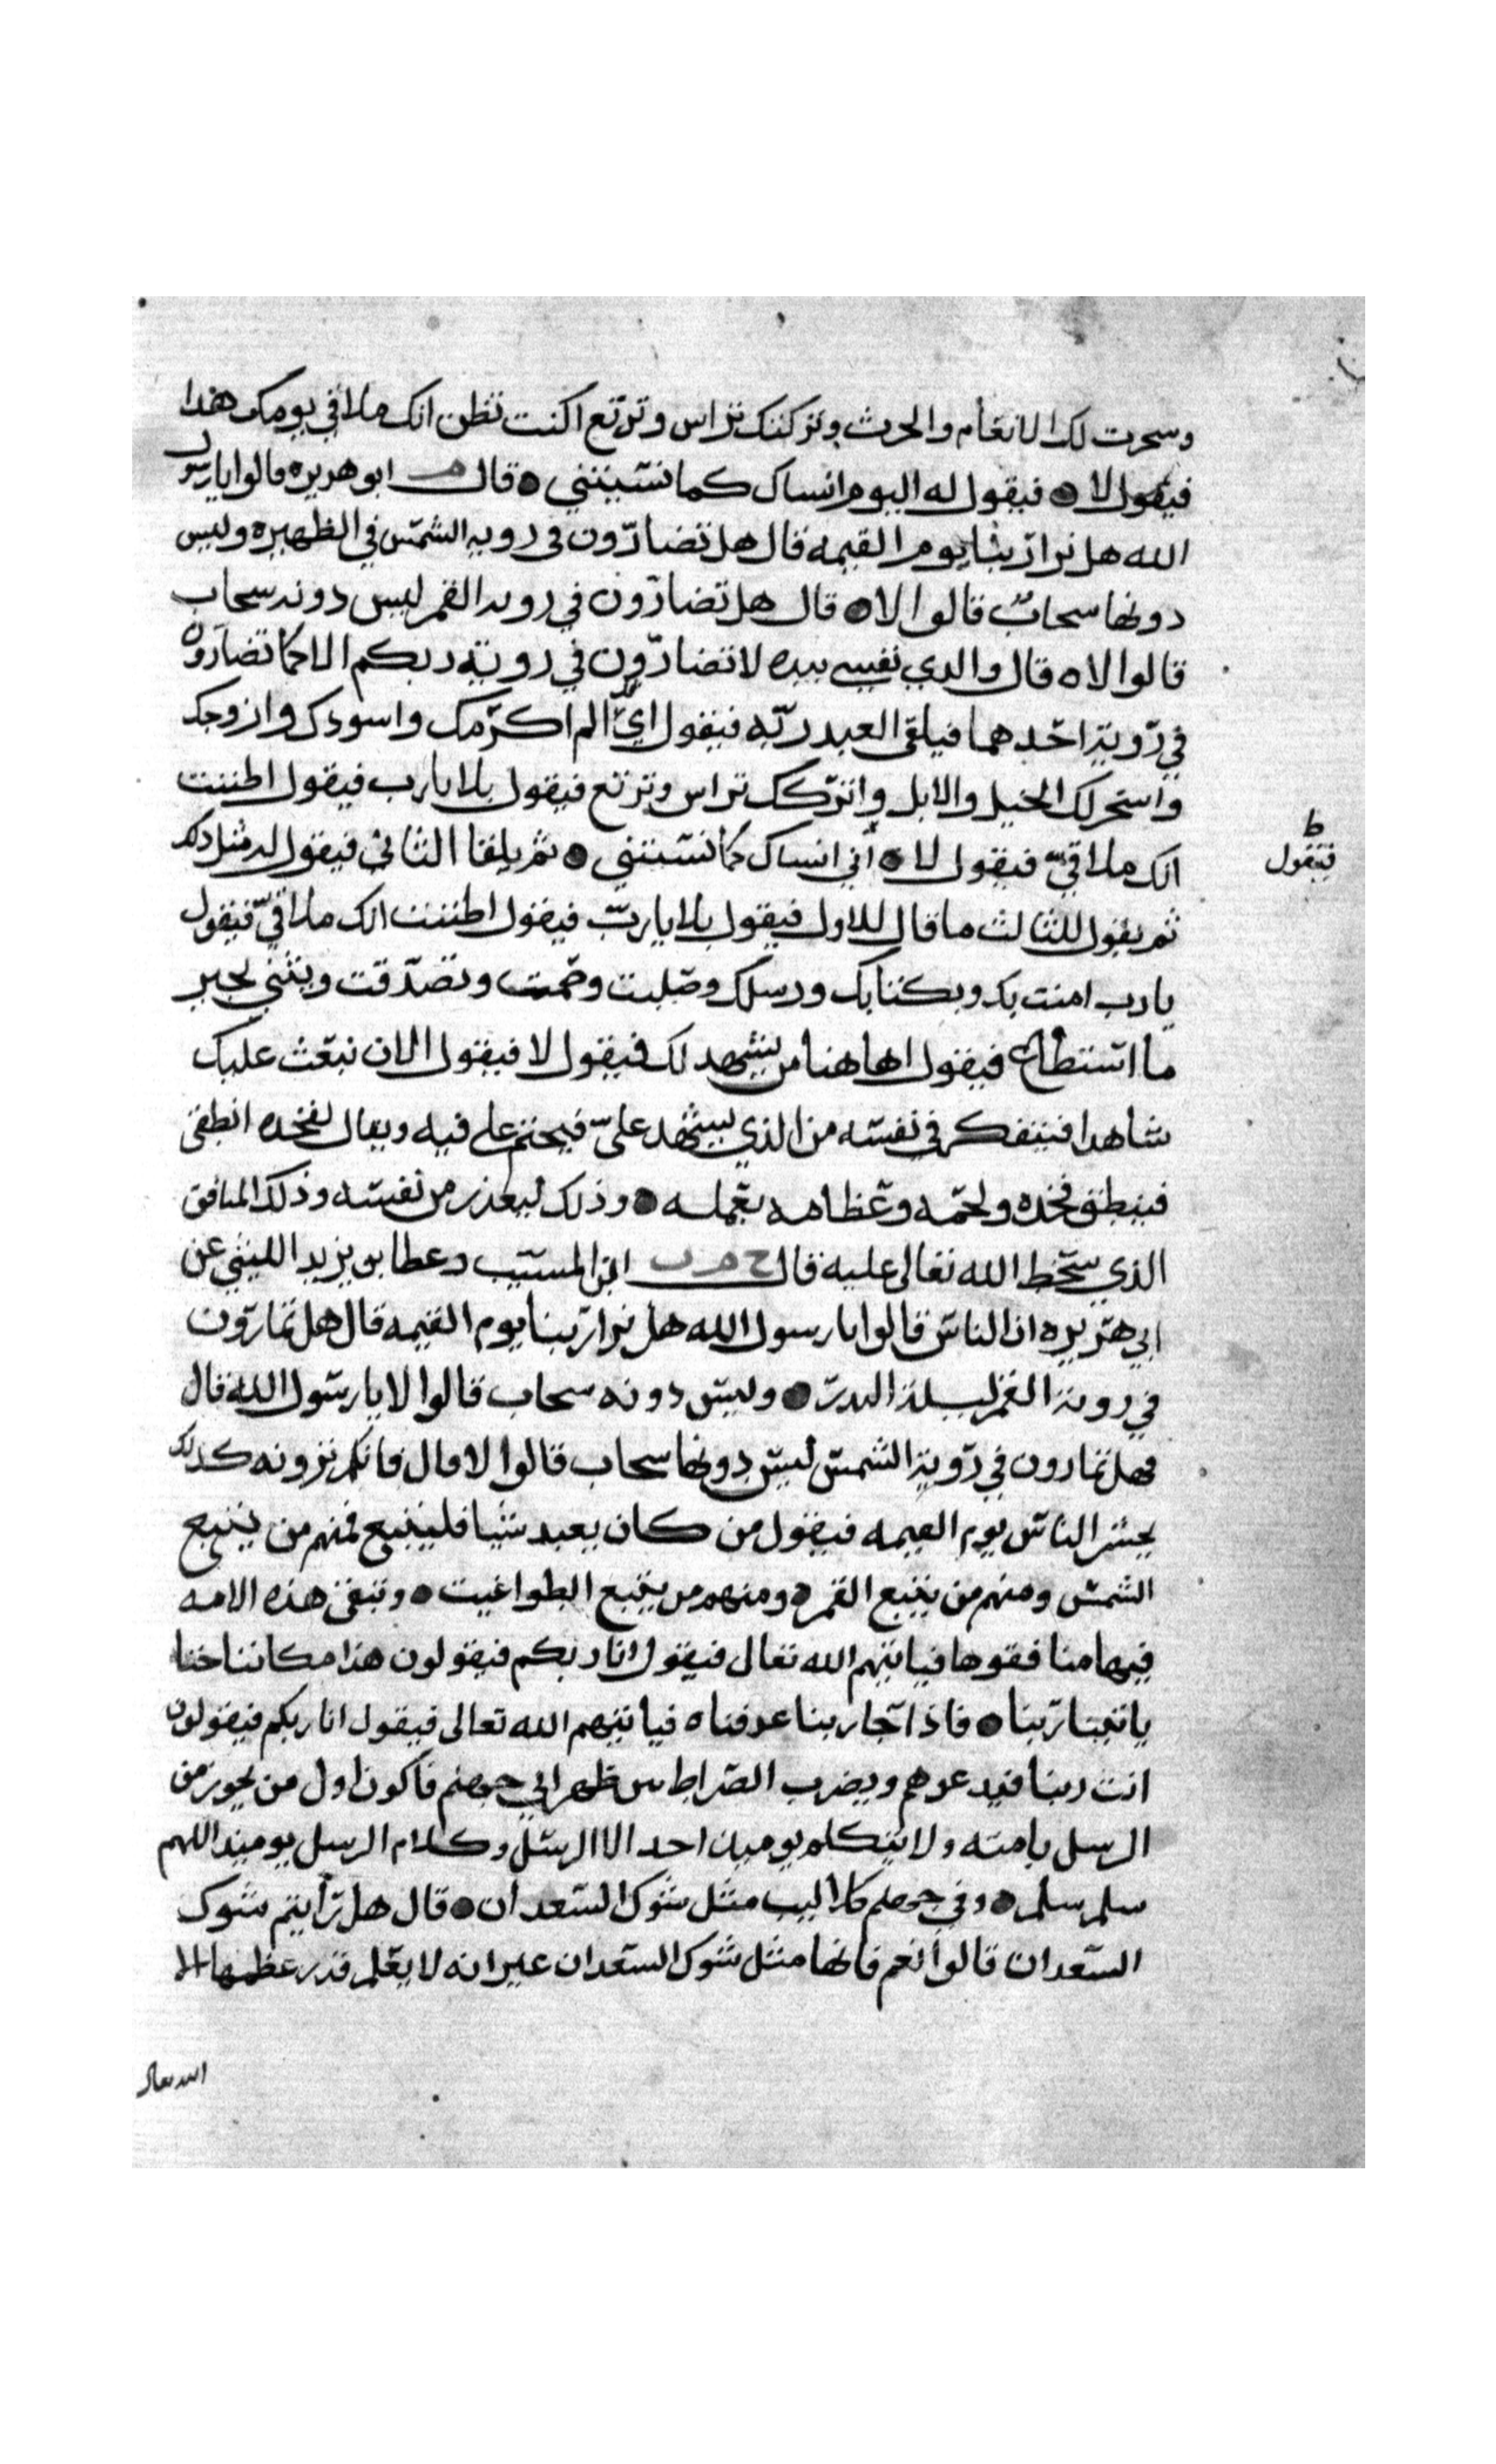 وسخرت لك الانعام والحرث وتركتك تراس وترتع اكنت تظن انك ملاقي يومك هذا
فيقول لا فيقول له اليوم انساك كما نسيتني قال م ابو هريره قالوا يا رسول
الله هل نرا ربنا يوم القيمه قال هل تضارون في رويه الشمس في الظهيره وليس
دونها سحاب قالوا لا قال هل تضارون في رويه القمر ليس دونه سحاب
قالوا لا ه قال والذي نفسي بيده لا تضارون في روية ربكم الا كما تضارون
في روية احدهما فيلقى العبد ربه فيقول اي الم اكرمك واسودك وازوجك
واسخر لك الخيل والابل واتركك تراس وترتع فيقول بلا يا رب فيقول اظننت
فيقول
ط
انك ملاقي فيقول لا اني انساك كما نسيتني ثم يلقا الثاني فيقول له مثل ذلك
ثم يقول للثالث ما قال للاول فيقول بلا يا رب فيقول اظننت انك ملاقي فيقول
يا رب امنت بك وبكتابك ورسلك وصليت وصمت وتصدقت ويثني بخير
ما استطاع فيقول اها هنا من يشهد لك فيقول لا فيقول الان نبعث عليك
شاهدا فيتفكر في نفسه من الذي يشهد علي فيختم على فيه ويقال لفخذه انطقي
فينطق فخذه ولحمه وعظامه بعمله وذلك ليعذر من نفسه وذلك المنافق
الذي سخط الله تعالى عليه قال خ م ابن المسيب وعطا بن يزيد الليثي عن
ابي هريره ان الناس قالوا يا رسول الله هل نرا ربنا يوم القيمه قال هل تمارون
في روية القمر ليلة البدر وليس دونه سحاب قالوا لا يا رسول الله قال
فهل تمارون في روية الشمس ليس دونها سحاب قالوا لا قال فانكم ترونه كذلك
يحشر الناس يوم القيمه فيقول من كان يعبد شيا فليتبع فمنهم من يتبع
الشمس ومنهم من يتبع القمر ومنهم من يتبع الطواغيت وتبقى هذه الامه
فيها منافقوها فياتيهم الله تعالى فيقول انا ربكم فيقولون هذا مكاننا حتا
ياتينا ربنا فاذا جا ربنا عرفناه فياتيهم الله تعالى فيقول انا ربكم فيقولون
انت ربنا فيدعوهم ويضرب الصراط بين ظهراني جهنم فاكون اول من يجوز من
الرسل بامته ولا يتكلم يوميذ احد الا الرسل وكلام الرسل يوميذ اللهم
سلم سلم وفي جهنم كلاليب مثل شوك السعدان قال هل رايتم شوك
السعدان قالوا نعم فانها مثل شوك السعدان غير انه لا يعلم قدر عظمها الا
الله تعالى